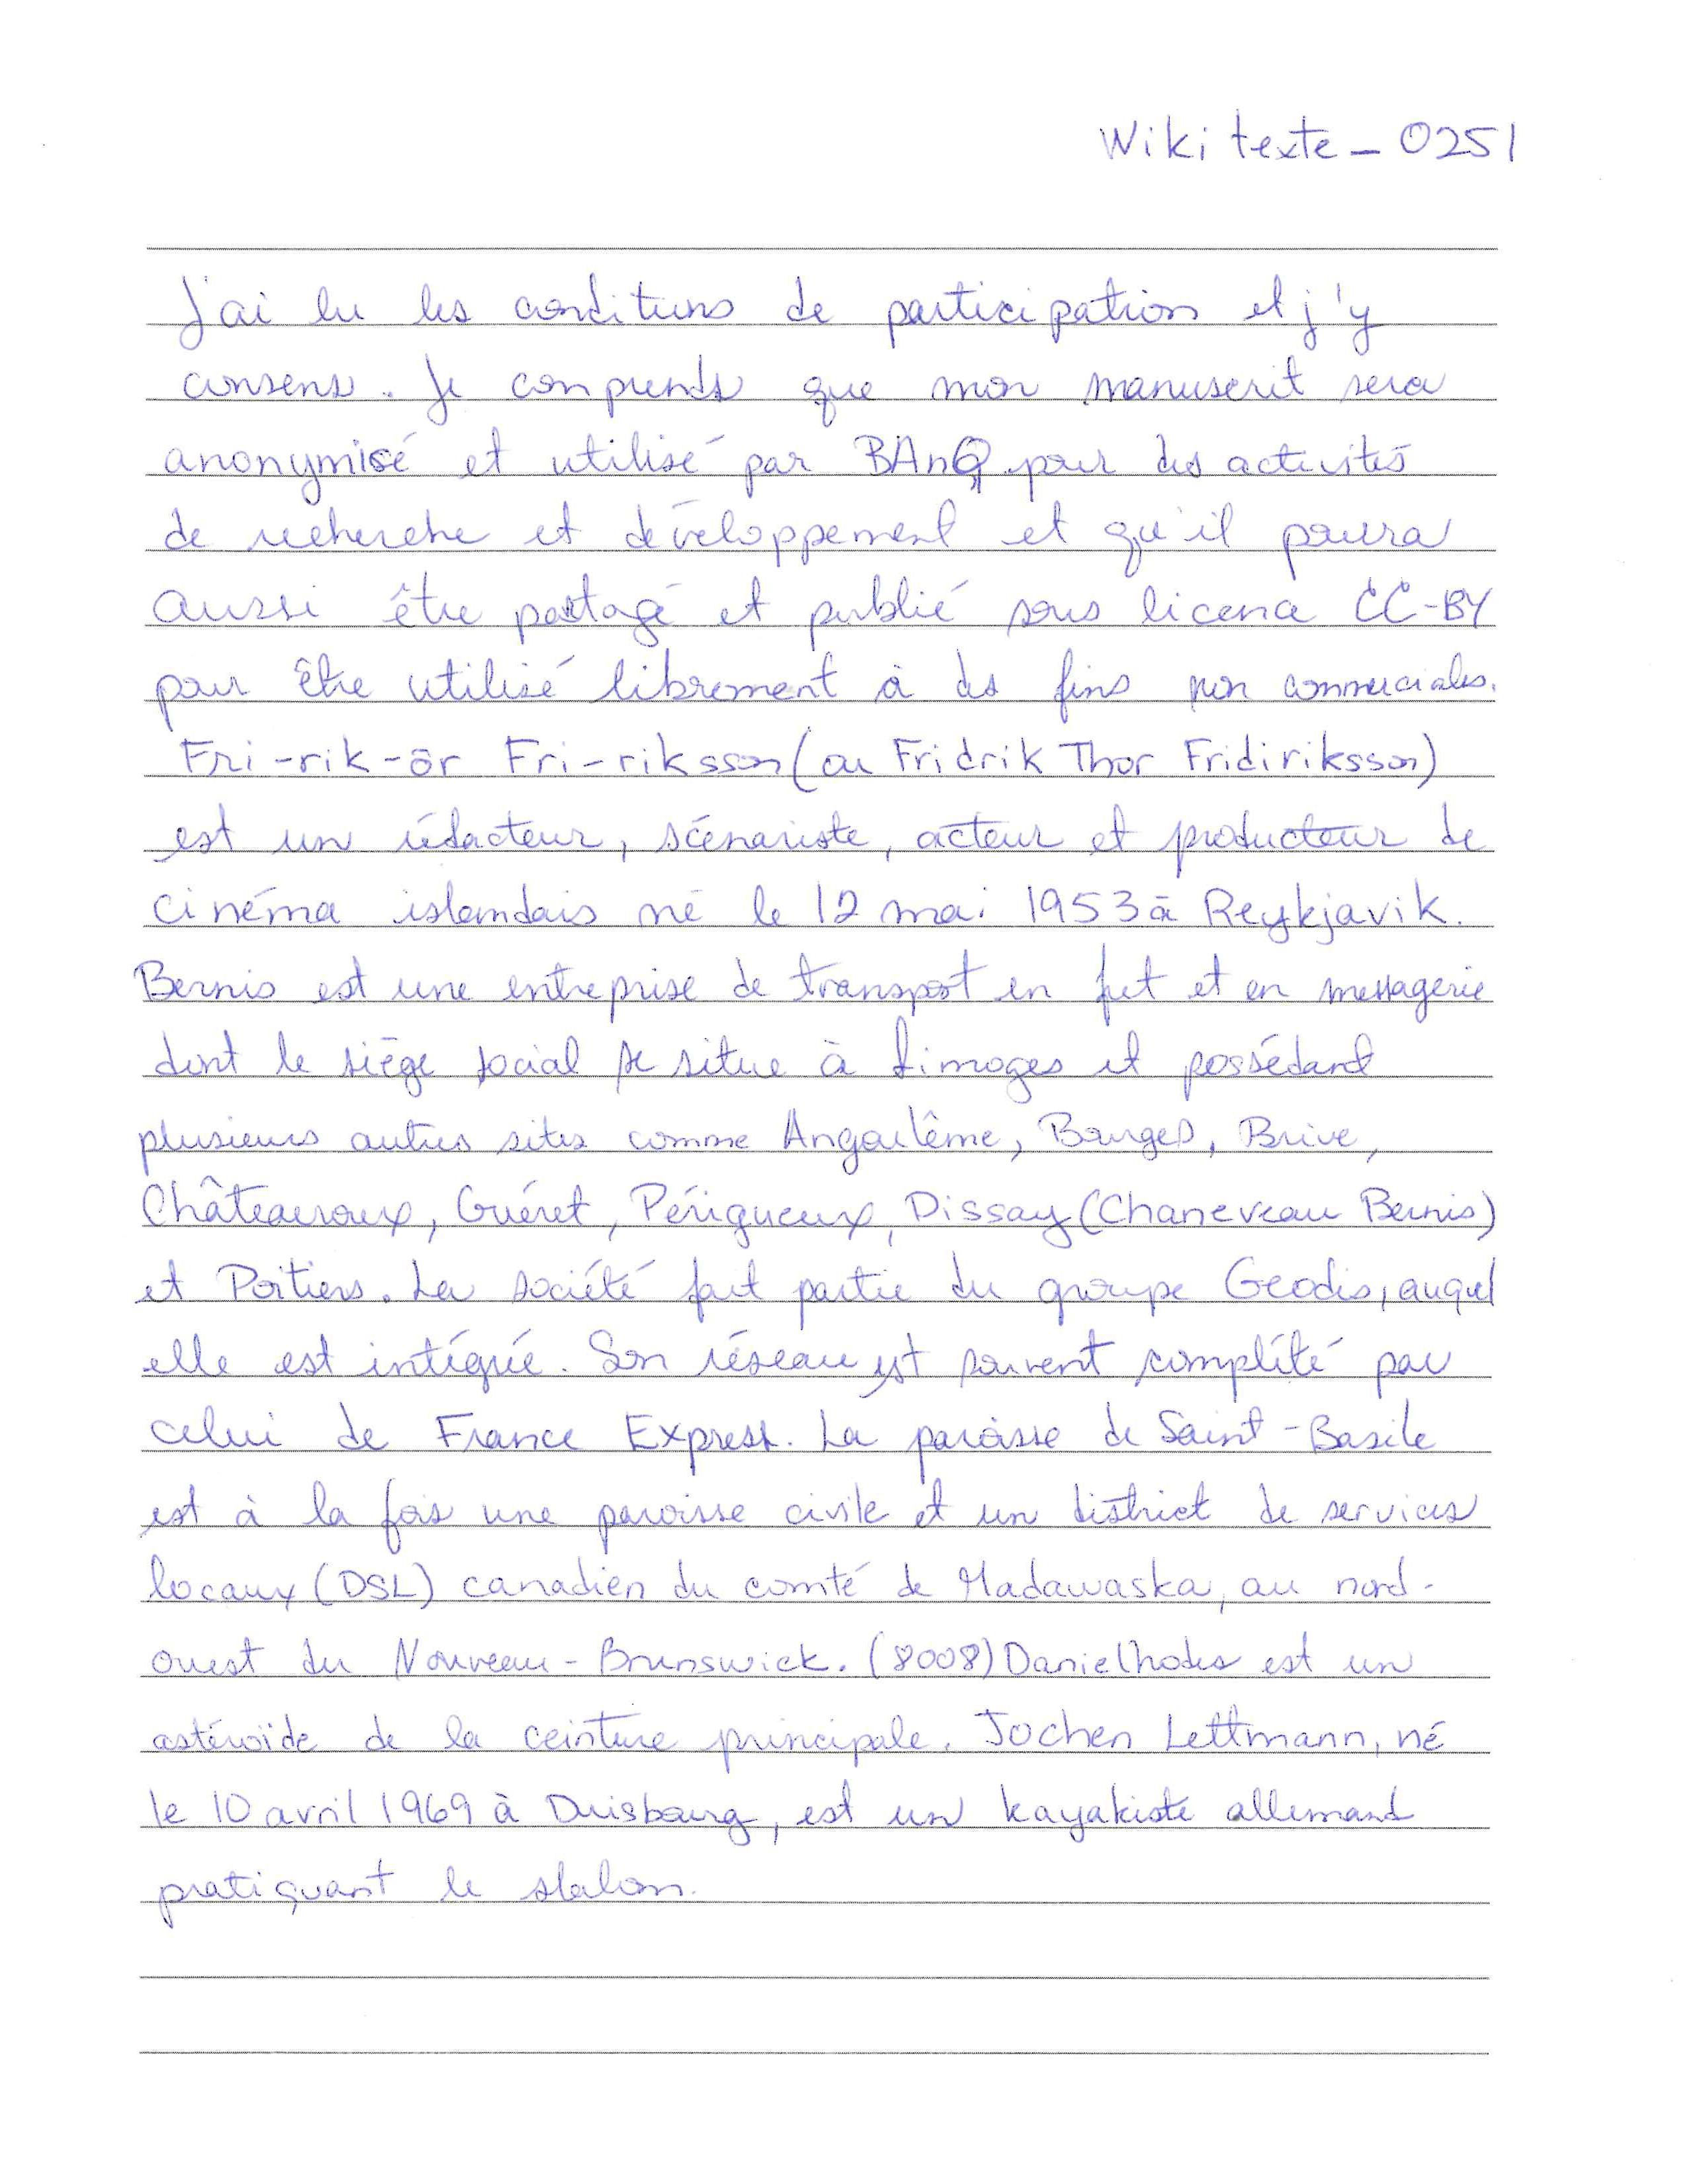 Wiki texte - 0251
J'ai lu les conditions de participation et j'y
consens. Je comprends que mon manuscrit sera
anonymisé et utilisé par BAnQ pour des activités
de recherche et développement et qu'il pourra
aussi être partagé et publié sous licence CC-BY
pour être utilisé librement à des fins non commerciales.
Fri-rik-ór Fri-riksson (ou Fridrik Thor Fridiriksson)
est un rédacteur, scénariste, acteur et producteur de
cinéma islandais né le 12 mai 1953 à Reykjavik.
Bernis est une entreprise de transport en fret et en messagerie
dont le siège social se situe à Limoges et possédant
plusieurs autres sites comme Angoulême, Bourges, Brive,
Châteauroux, Guéret, Périgueux, Dissay (Chaneveau Bernis)
et Poitiers. La société fait partie du groupe Geodis, auquel
elle est intégrée. Son réseau est souvent complété par
celui de France Express. La paroisse de Saint-Basile
est à la fois une paroisse civile et un district de services
locaux (DSL) canadien du comté de Madawaska, au nord-
ouest du Nouveau-Brunswick. (8008) Danielhodes est un
astéroïde de la ceinture principale. Jochen Lettmann, né
le 10 avril 1969 à Duisbourg, est un kayakiste allemand
pratiquant le slalom.